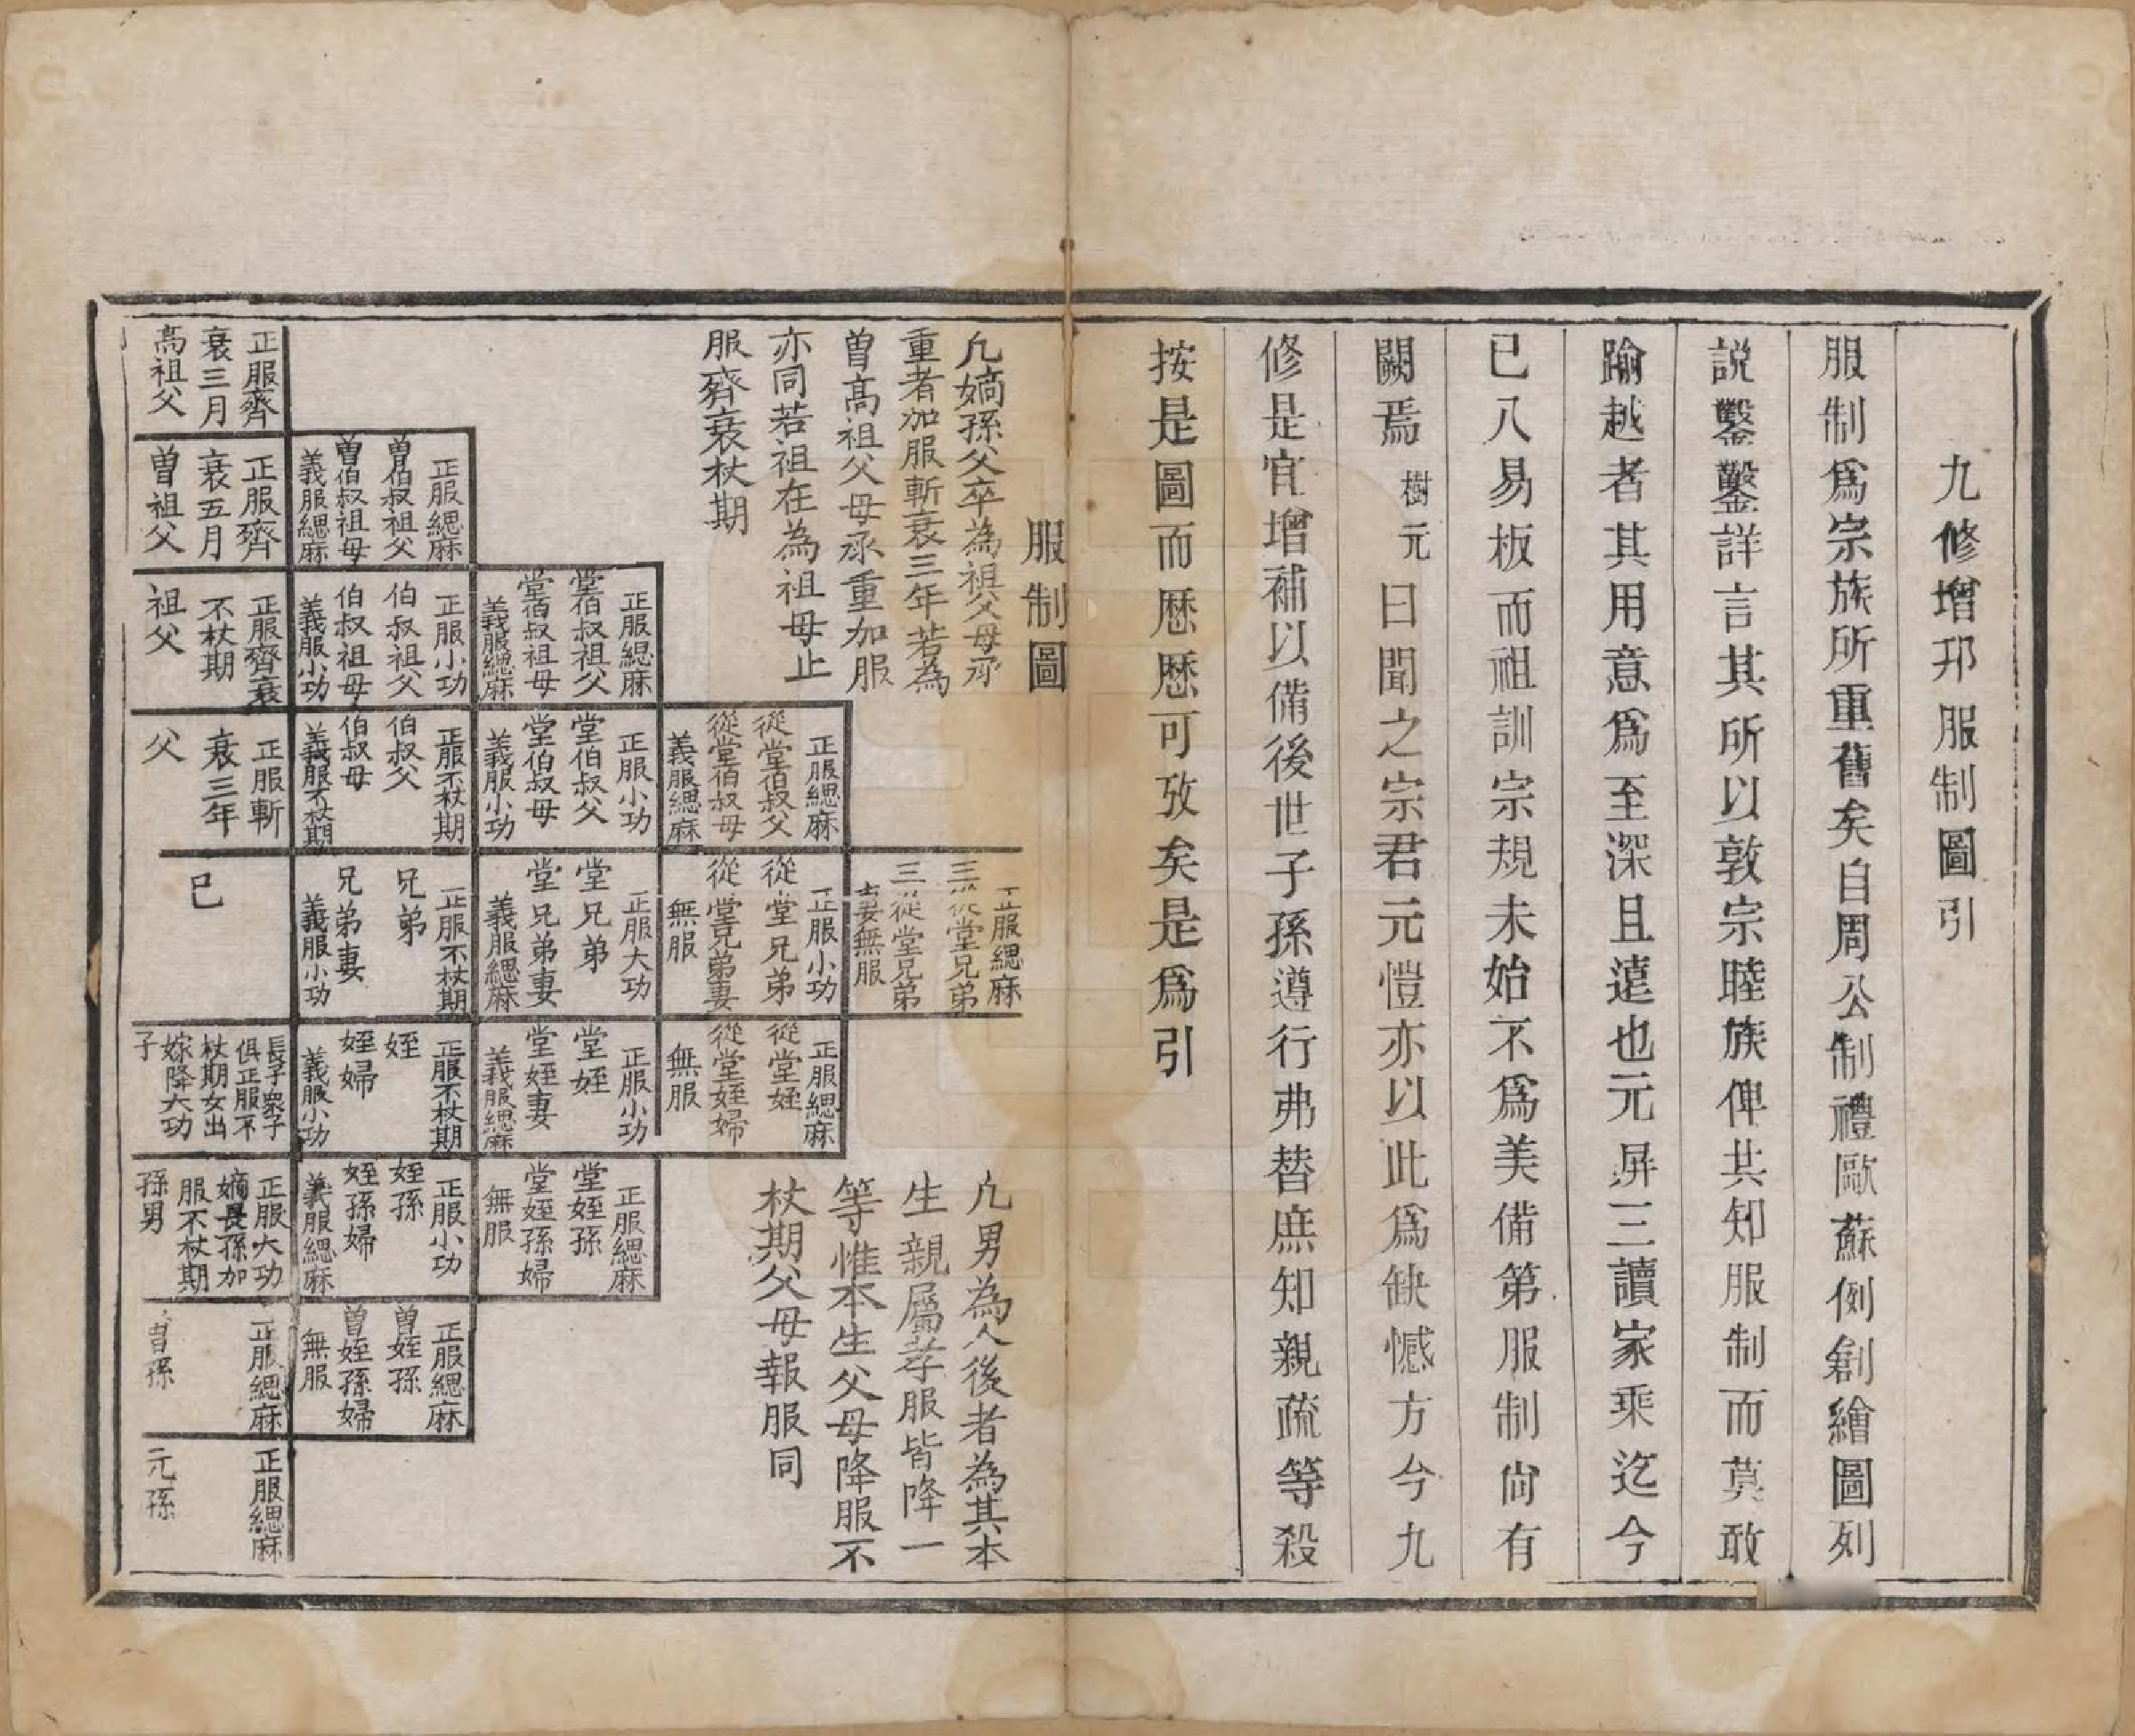 九修增邘服制圖引
服制爲宗族所重舊矣自周公制禮歐蘇例創繪圖列
説鑿鑿詳言其所以敦宗睦族俾共知服制而莫敢
踰越者其用意爲至深且遠也元屏三讀家乘迄今
已八易板而祖訓宗規未始不爲美備第服制尙有
闕焉樹元曰聞之宗君元愷亦以此爲缺憾方今九
修是宜增補以備後世子孫遵行弗替庶知親疏等殺
按是圖而歷歷可攷矣是爲引
服制圖
凢嫡孫父卒為祖父母承
重者加服斬衰三年若為
曽高祖父母承重加服
亦同若祖在為祖母止
服齊衰杖期
凢男為人後者為其本
生親屬孝服皆降一
等惟本生父母降服不
杖期父母報服同
正服緦麻
三從堂兄弟
三從堂兄弟
妻無服
正服緦麻
從堂伯叔父
從堂伯叔母
義服緦麻
正服小功
從堂兄弟
從堂兄弟妻
無服
正服緦麻
從堂姪
從堂姪婦
無服
正服緦麻
堂伯叔祖父
堂伯叔祖母
義服緦麻
正服小功
堂伯叔父
堂伯叔母
義服小功
正服大功
堂兄弟
堂兄弟妻
義服緦麻
正服小功
堂姪
堂姪妻
義服緦麻
正服緦麻
堂姪孫
堂姪孫婦
無服
正服緦麻
曽伯叔祖父
曽伯叔祖母
義服緦麻
正服小功
伯叔祖父
伯叔祖母
義服小功
正服不杖期
伯叔父
伯叔母
義服不杖期
正服不杖期
兄弟
兄弟妻
義服小功
正服不杖期
姪
姪婦
義服小功
正服小功
姪孫
姪孫婦
義服緦麻
正服緦麻
曽姪孫
曽姪孫婦
無服
正服齊
衰三月
高祖父
正服齊
衰五月
曽祖父
正服齊衰
不杖期
祖父
正服斬
衰三年
父
已
長子衆子
俱正服不
杖期女出
嫁降大功
子
正服大功
嫡長孫加
服不杖期
孫男
正服緦麻
曽孫
正服緦麻
元孫